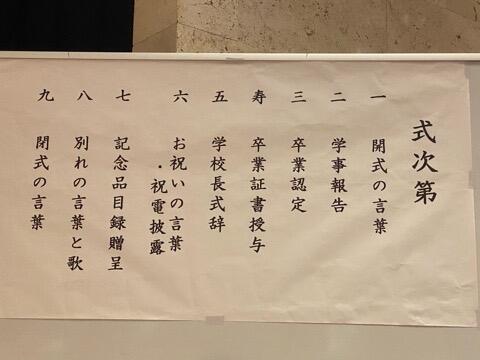 式次第
一 開式の言葉
二 学事報告
三 卒業認定
寿 卒業証書授与
五 学校長式辞
六 お祝いの言葉
・祝電披露
七 記念品目録贈呈
八 別れの言葉と歌
九 閉式の言葉